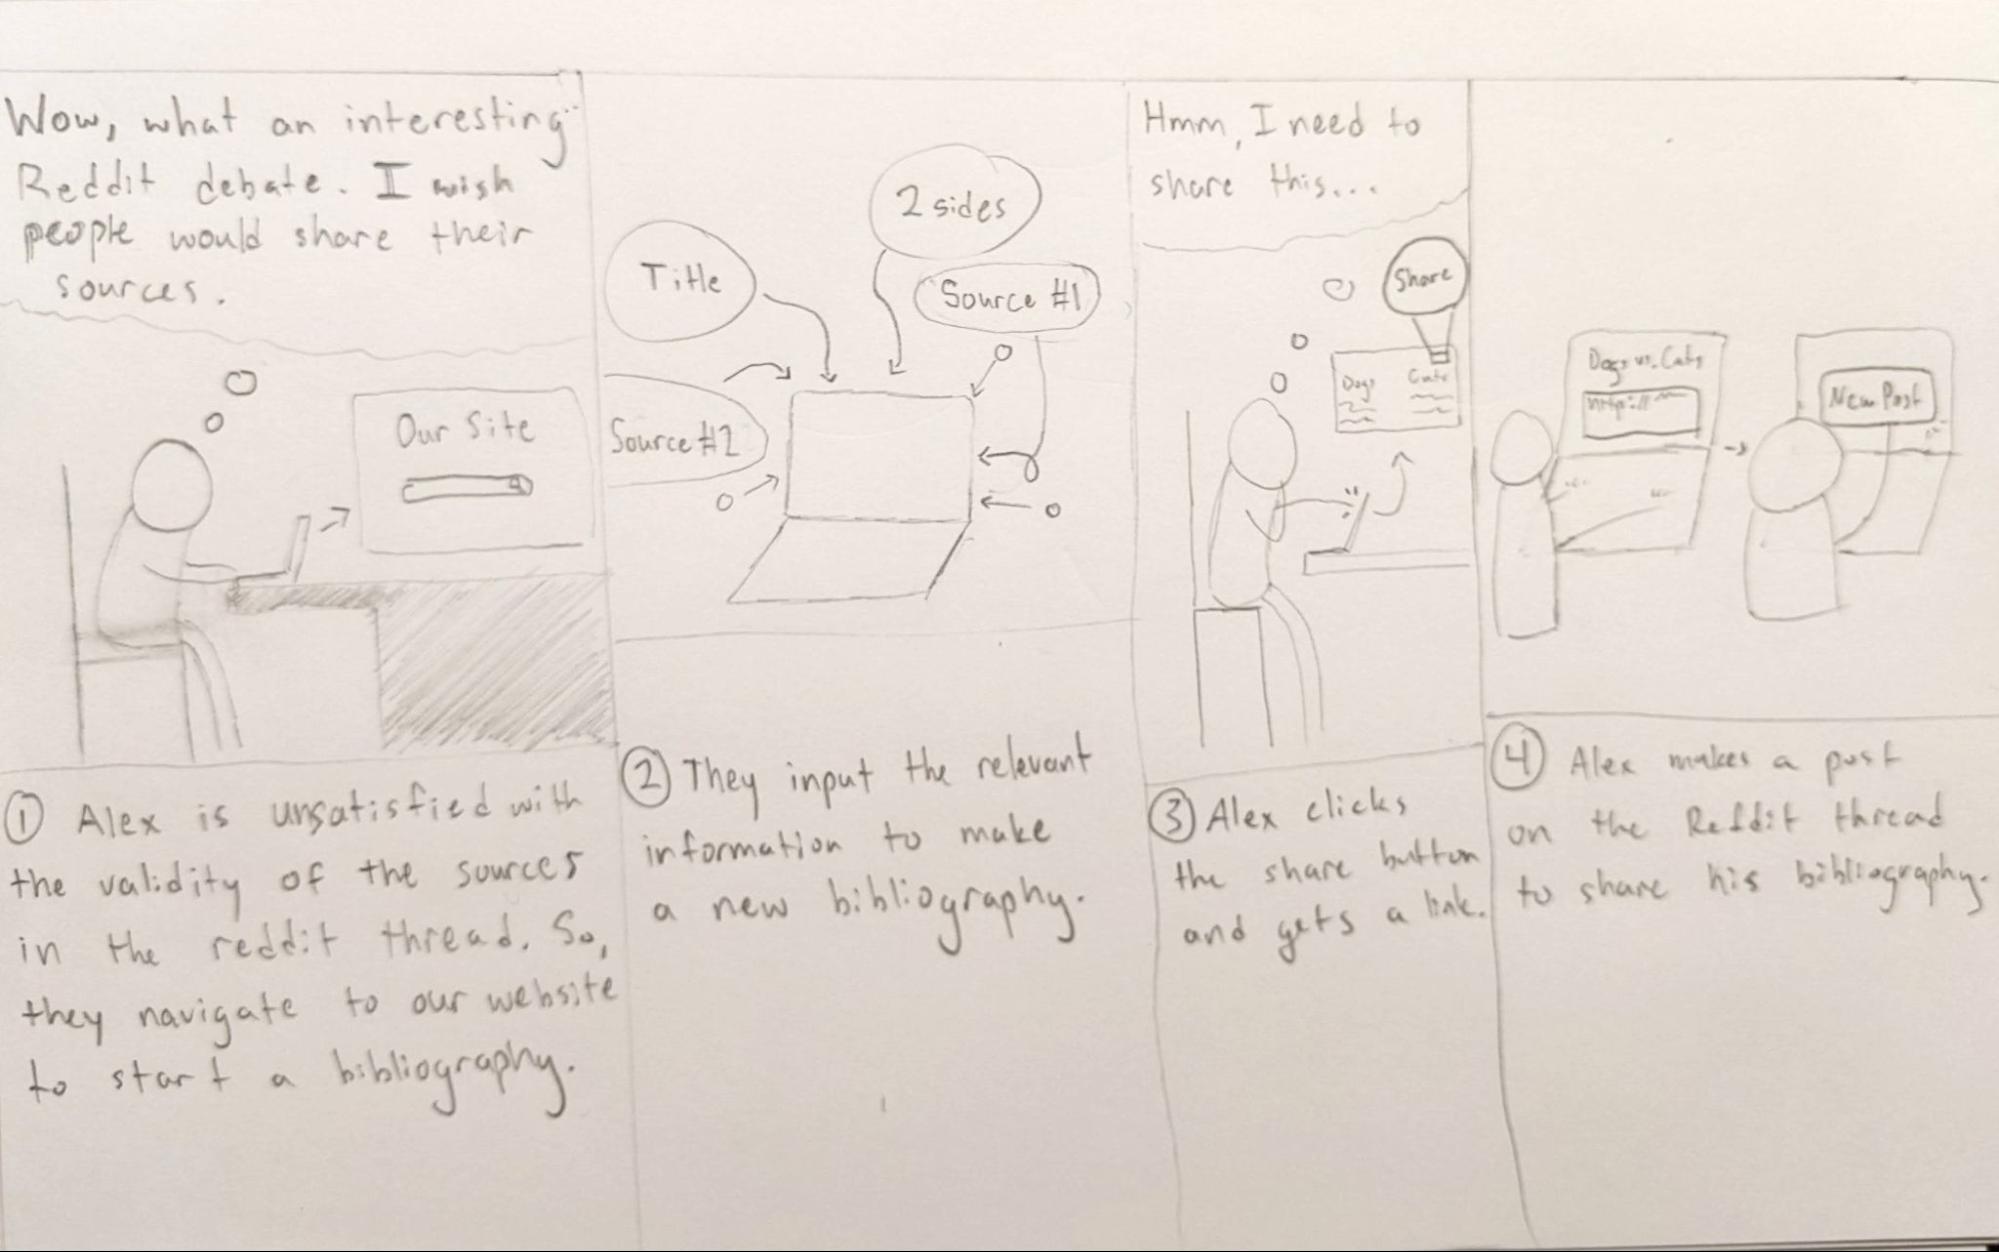 Wow, what an interesting
Reddit debate. I wish
people would share their
sources.
Our Site
① Alex is unsatisfied with
the validity of the sources
in the reddit thread. So,
they navigate to our website
to start a bibliography.
2 sides
Title
Source #1
Source #2
② They input the relevant
information to make
a new bibliography.
Hmm, I need to
share this...
Share
Dogs Cats
③ Alex clicks
the share button
and gets a link.
Dogs vs. Cats
http://
New Post
④ Alex makes a post
on the Reddit thread
to share his bibliography.